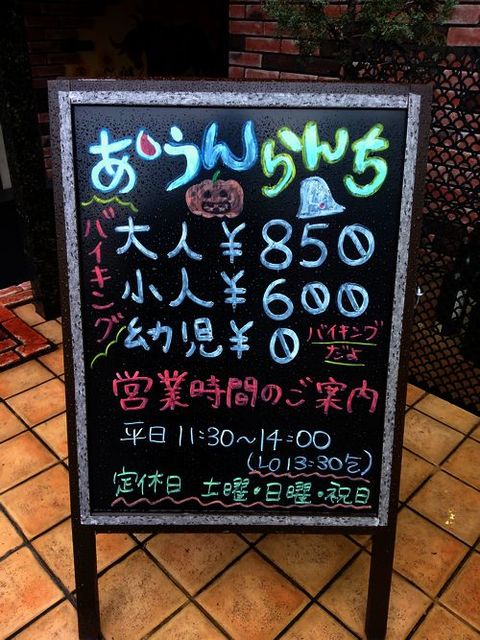 あ・うんらんち
バイキング
大人￥850
小人￥600
幼児￥0
バイキング
だよ
営業時間のご案内
平日 11:30～14:00
(LO 13:30迄)
定休日 土曜・日曜・祝日